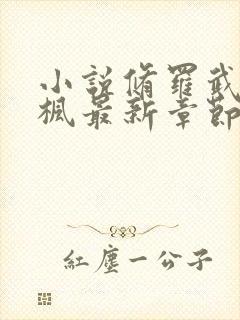 小說脩羅武
楓最新章節
紅塵一公子